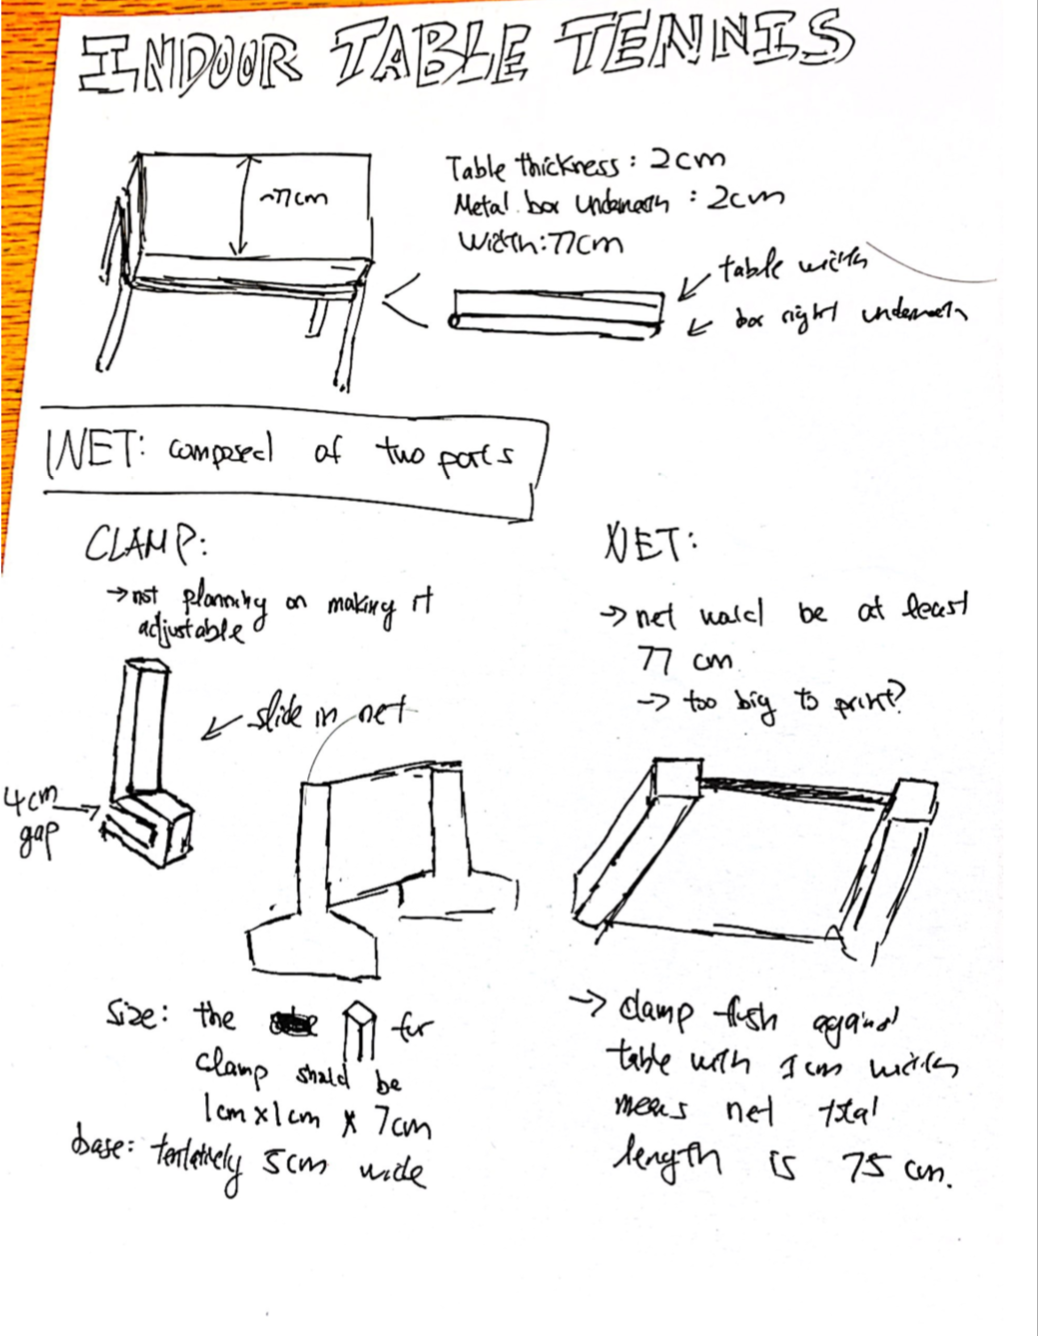 INDOOR TABLE TENNIS
~77cm
Table thickness: 2cm
Metal box underneath: 2cm
Width: 77cm
table width
box right underneath
NET: composed of two parts
CLAMP:
→ not planning on making it
adjustable
slide in net
4cm
gap
size: the for
clamp should be
1cm x 1cm x 7cm
base: tentatively 5cm wide
NET:
→ net would be at least
77 cm
→ too big to print?
→ clamp flush against
table with 1cm width
means net total
length is 75 cm.